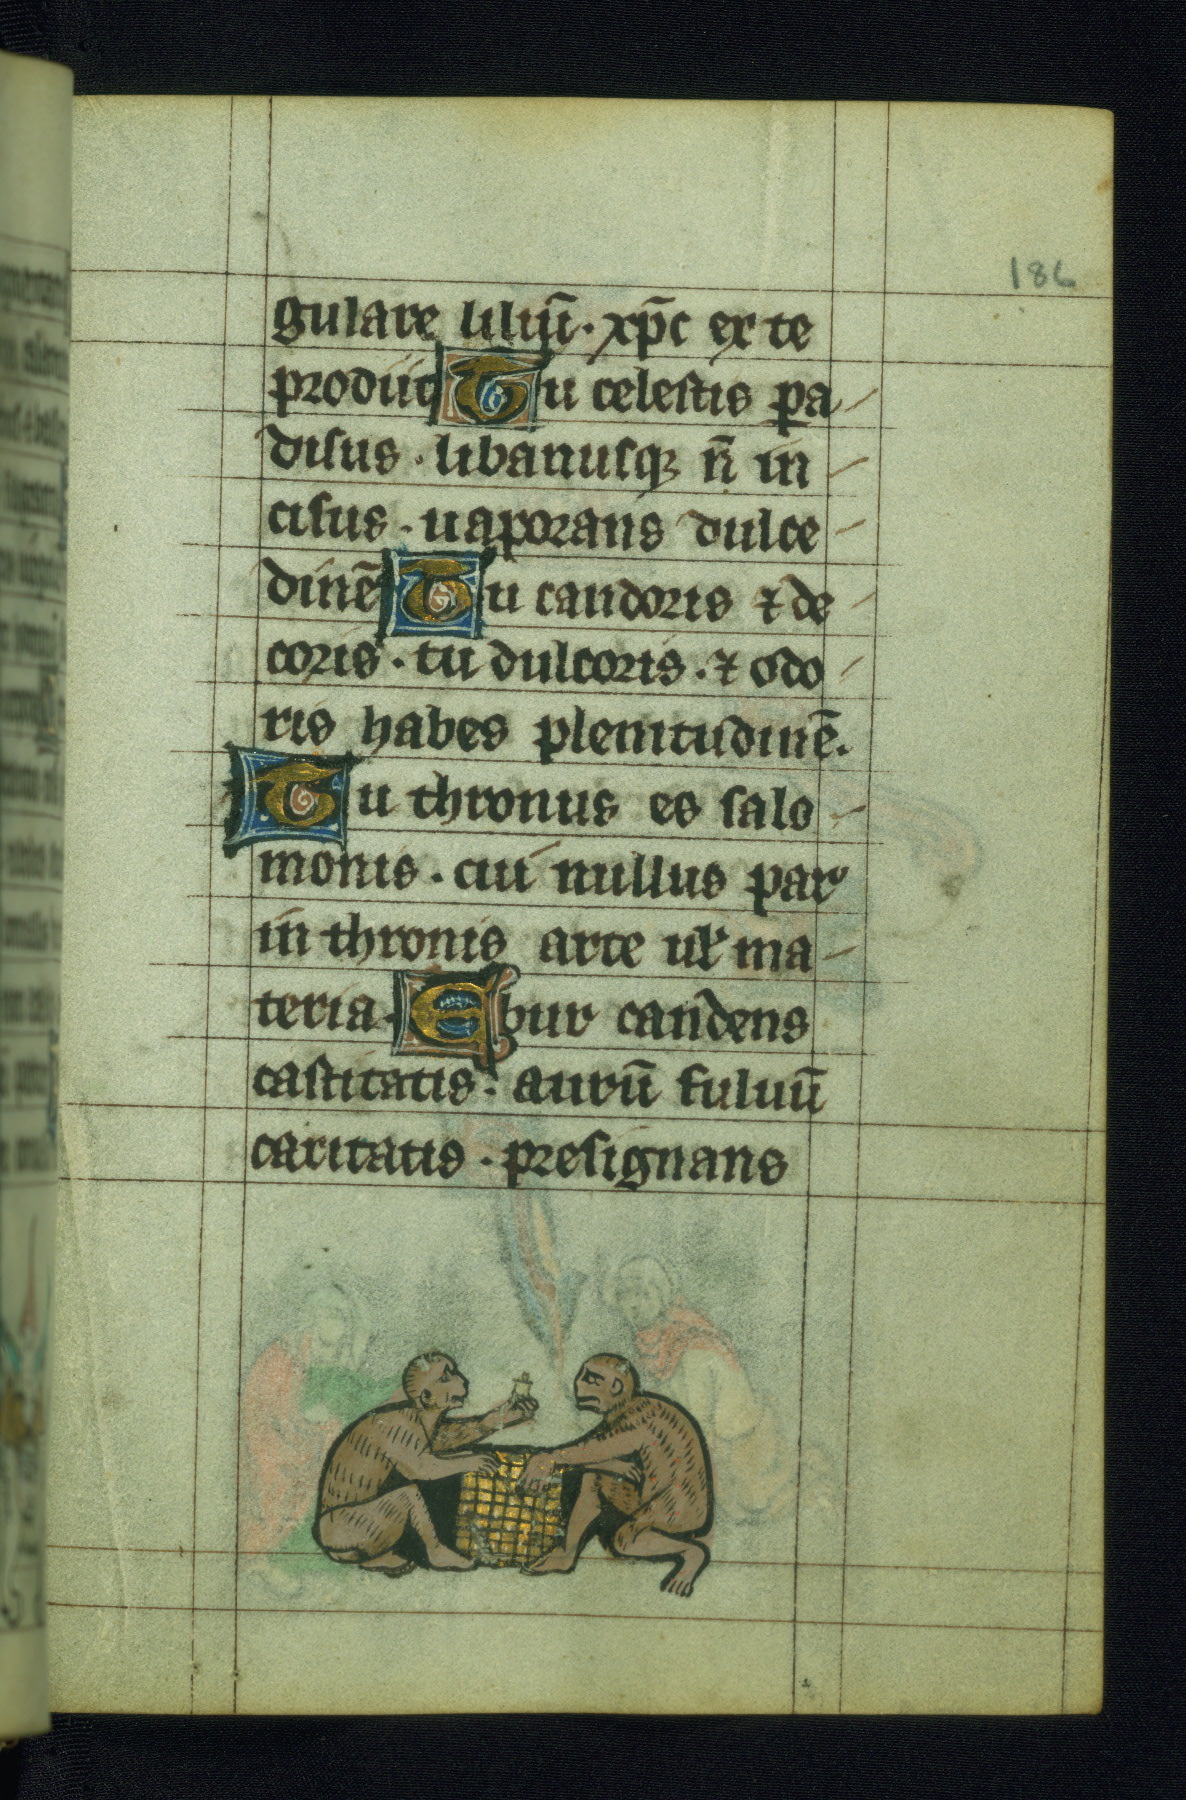 186
gulare liliū· xp̄c ex te
prodiit Tu celestis pa
disus · libanusqꝫ n̄ in
cisus · uaporans dulce
dinē Tu candoris ⁊ de
coris · tu dulcoris · ⁊ odo
ris habes plenitudinē.
Tu thronus es salo
monis · cui nullus par
in thronis arte ul̓ ma
teria· Ebur candens
castitatis · aurū fuluū
caritatis · presignans